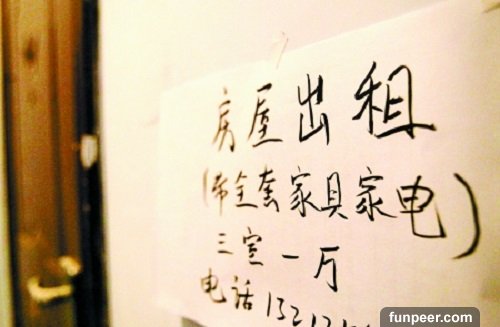 房屋出租
(带全套家具家电)
三室一厅
电话1321
funpeer.com